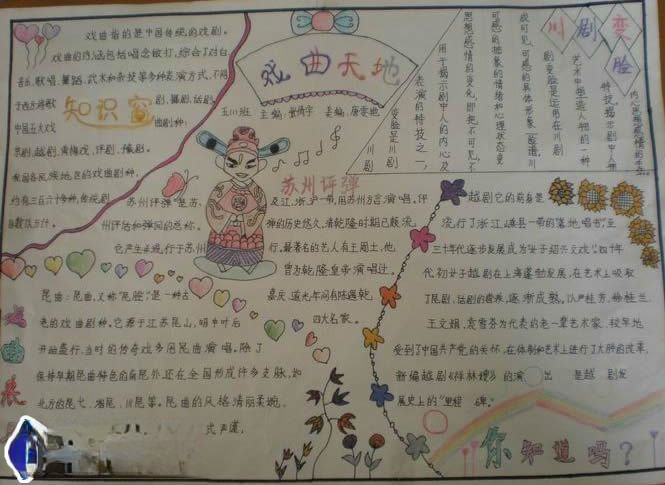 戏曲天地
五川班 主编:
美编:
知识窗
戏曲指的是中国传统的戏剧。
戏曲的内涵包括唱念做打,综合了对白
音乐、歌唱、舞蹈、武术和杂技等多种表演方式,不同
于西方的歌剧、舞剧、话剧。
中国五大戏曲剧种:
京剧、越剧、黄梅戏、评剧、豫剧。
我国各民族地区的戏曲剧种,
约有三百六十多种,传统剧
目数以万计。
川剧变脸
变脸是川剧
表演的特技之一,
用于揭示剧中人的内心及
思想感情的变化,即把不可见、不
可感的抽象的情绪和心理状态变
成可见、可感的具体形象——脸谱。川
剧变脸是运用在川剧
艺术中塑造人物的一种
特技。揭示剧中人物
内心思想感情的
苏州评弹
苏州评弹是苏
州评话和弹词的总称。
它产生并流行于苏州
及江、浙、沪一带,用苏州方言演唱。评
弹的历史悠久,清乾隆时期已颇流
行。最著名的艺人有王周士,他
曾为乾隆皇帝演唱过。
嘉庆、道光年间有陈遇乾,
四大名家。
戏曲表
昆曲:昆曲,又称“昆腔”是一种古
老的戏曲剧种。它源于江苏昆山,明中叶后
开始盛行,当时的传奇戏多用昆曲演唱。除了
保持早期昆曲特色的南昆外,还在全国形成许多支脉,如
北方的昆弋、湘昆、川昆等。昆曲的风格清丽柔婉、
式严谨,
越剧它的前身是
流行了浙江嵊县一带的“落地唱书”。至
三十年代逐步发展成为“女子绍兴文戏”。四十年
代初女子越剧在上海蓬勃发展,在艺术上吸取
了昆剧、话剧的营养,逐渐成熟。以
王文娟、袁雪芬为代表的老一辈艺术家,较早地
受到了中国共产党的关怀,在体制和艺术上进行了大胆的改革,
新编越剧《祥林嫂》的演出是越剧发
展史上的“里程碑。
你知道吗?